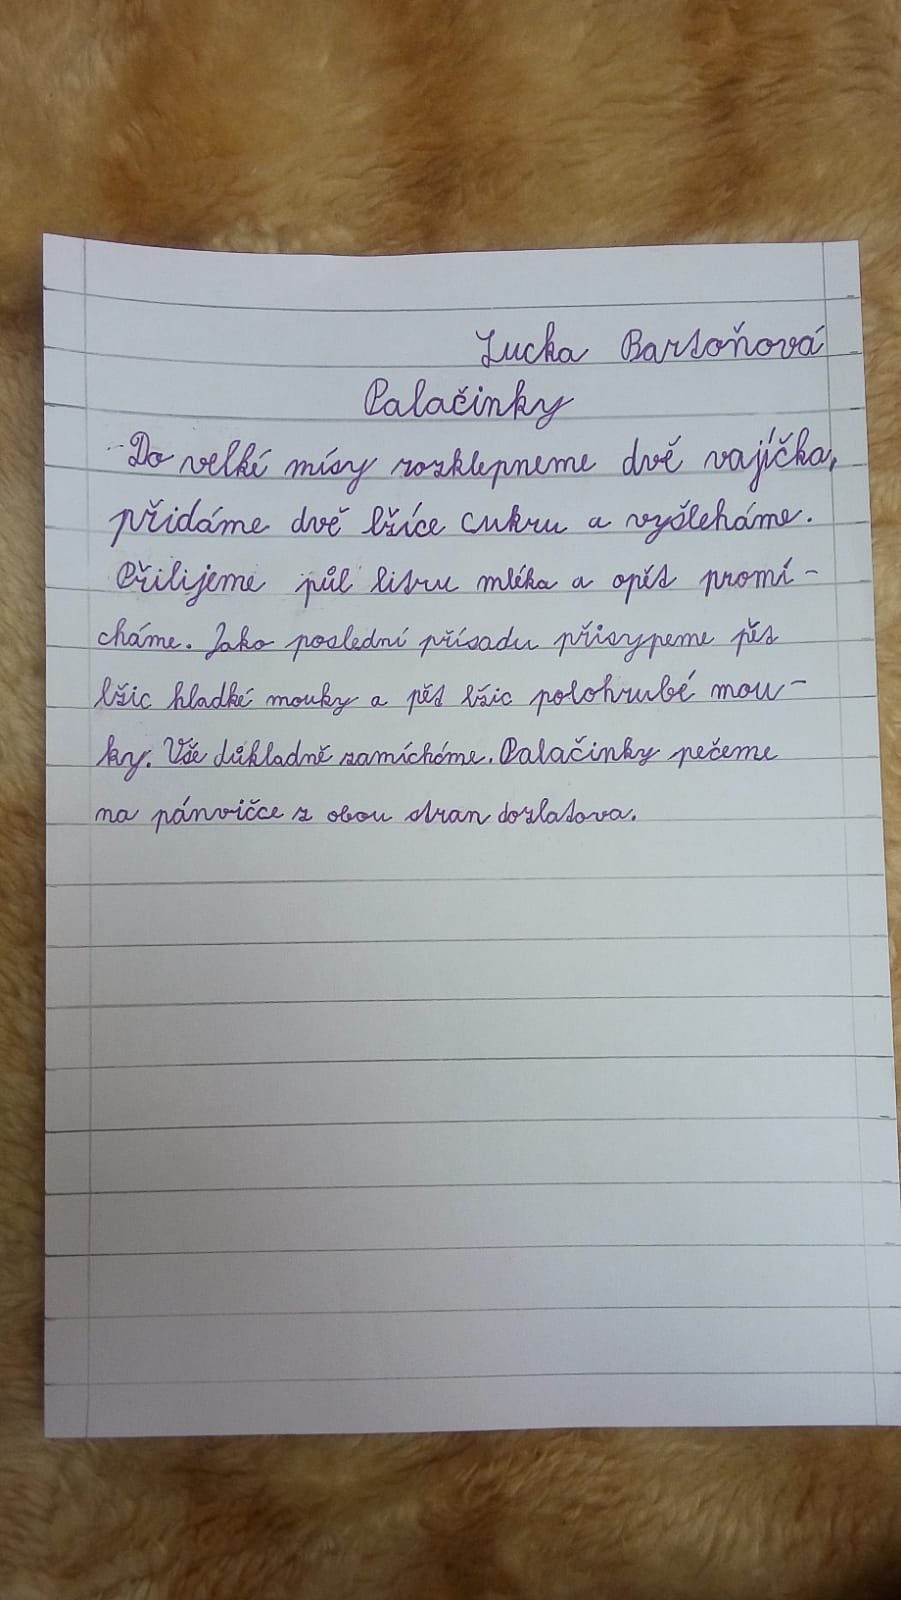 Lucka Bartoňová
Palačinky
Do velké mísy rozklepneme dvě vajíčka,
přidáme dvě lžíce cukru a vyšleháme.
Přilijeme půl litru mléka a opět promí-
cháme. Jako poslední přísadu přisypeme pět
lžic hladké mouky a pět lžic polohrubé mou-
ky. Vše důkladně zamícháme. Palačinky pečeme
na pánvičce z obou stran dozlatova.